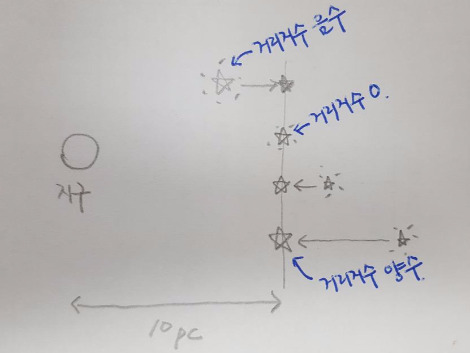 거리지수 음수
거리지수 0.
지구
거리지수 양수.
10pc